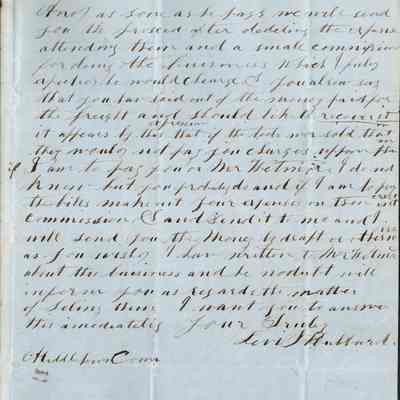 And as soon as he pays we will send
you the proceed after deducting the expense
attending them and a small commission
for doing the business which I fully
expected he would charge & you also say
that you have paid out of the money paid for
the freight and should like to recover it
it appears by this that if the tools wer sold that
at present
they would not pay your charges upon them
if I am to pay you or Mr Hetmir I do not
know but you probably do and if I am to pay
the bills make out your expense on them
commission & and send it to me and I
will send you the money by draft or
as you wish I have written to Mr
about the business and he no doubt will
inform you as regards the matter
of Seling them I want you to answer
this amediately Your Truly
Levi S Hubbard
Middletown Conn